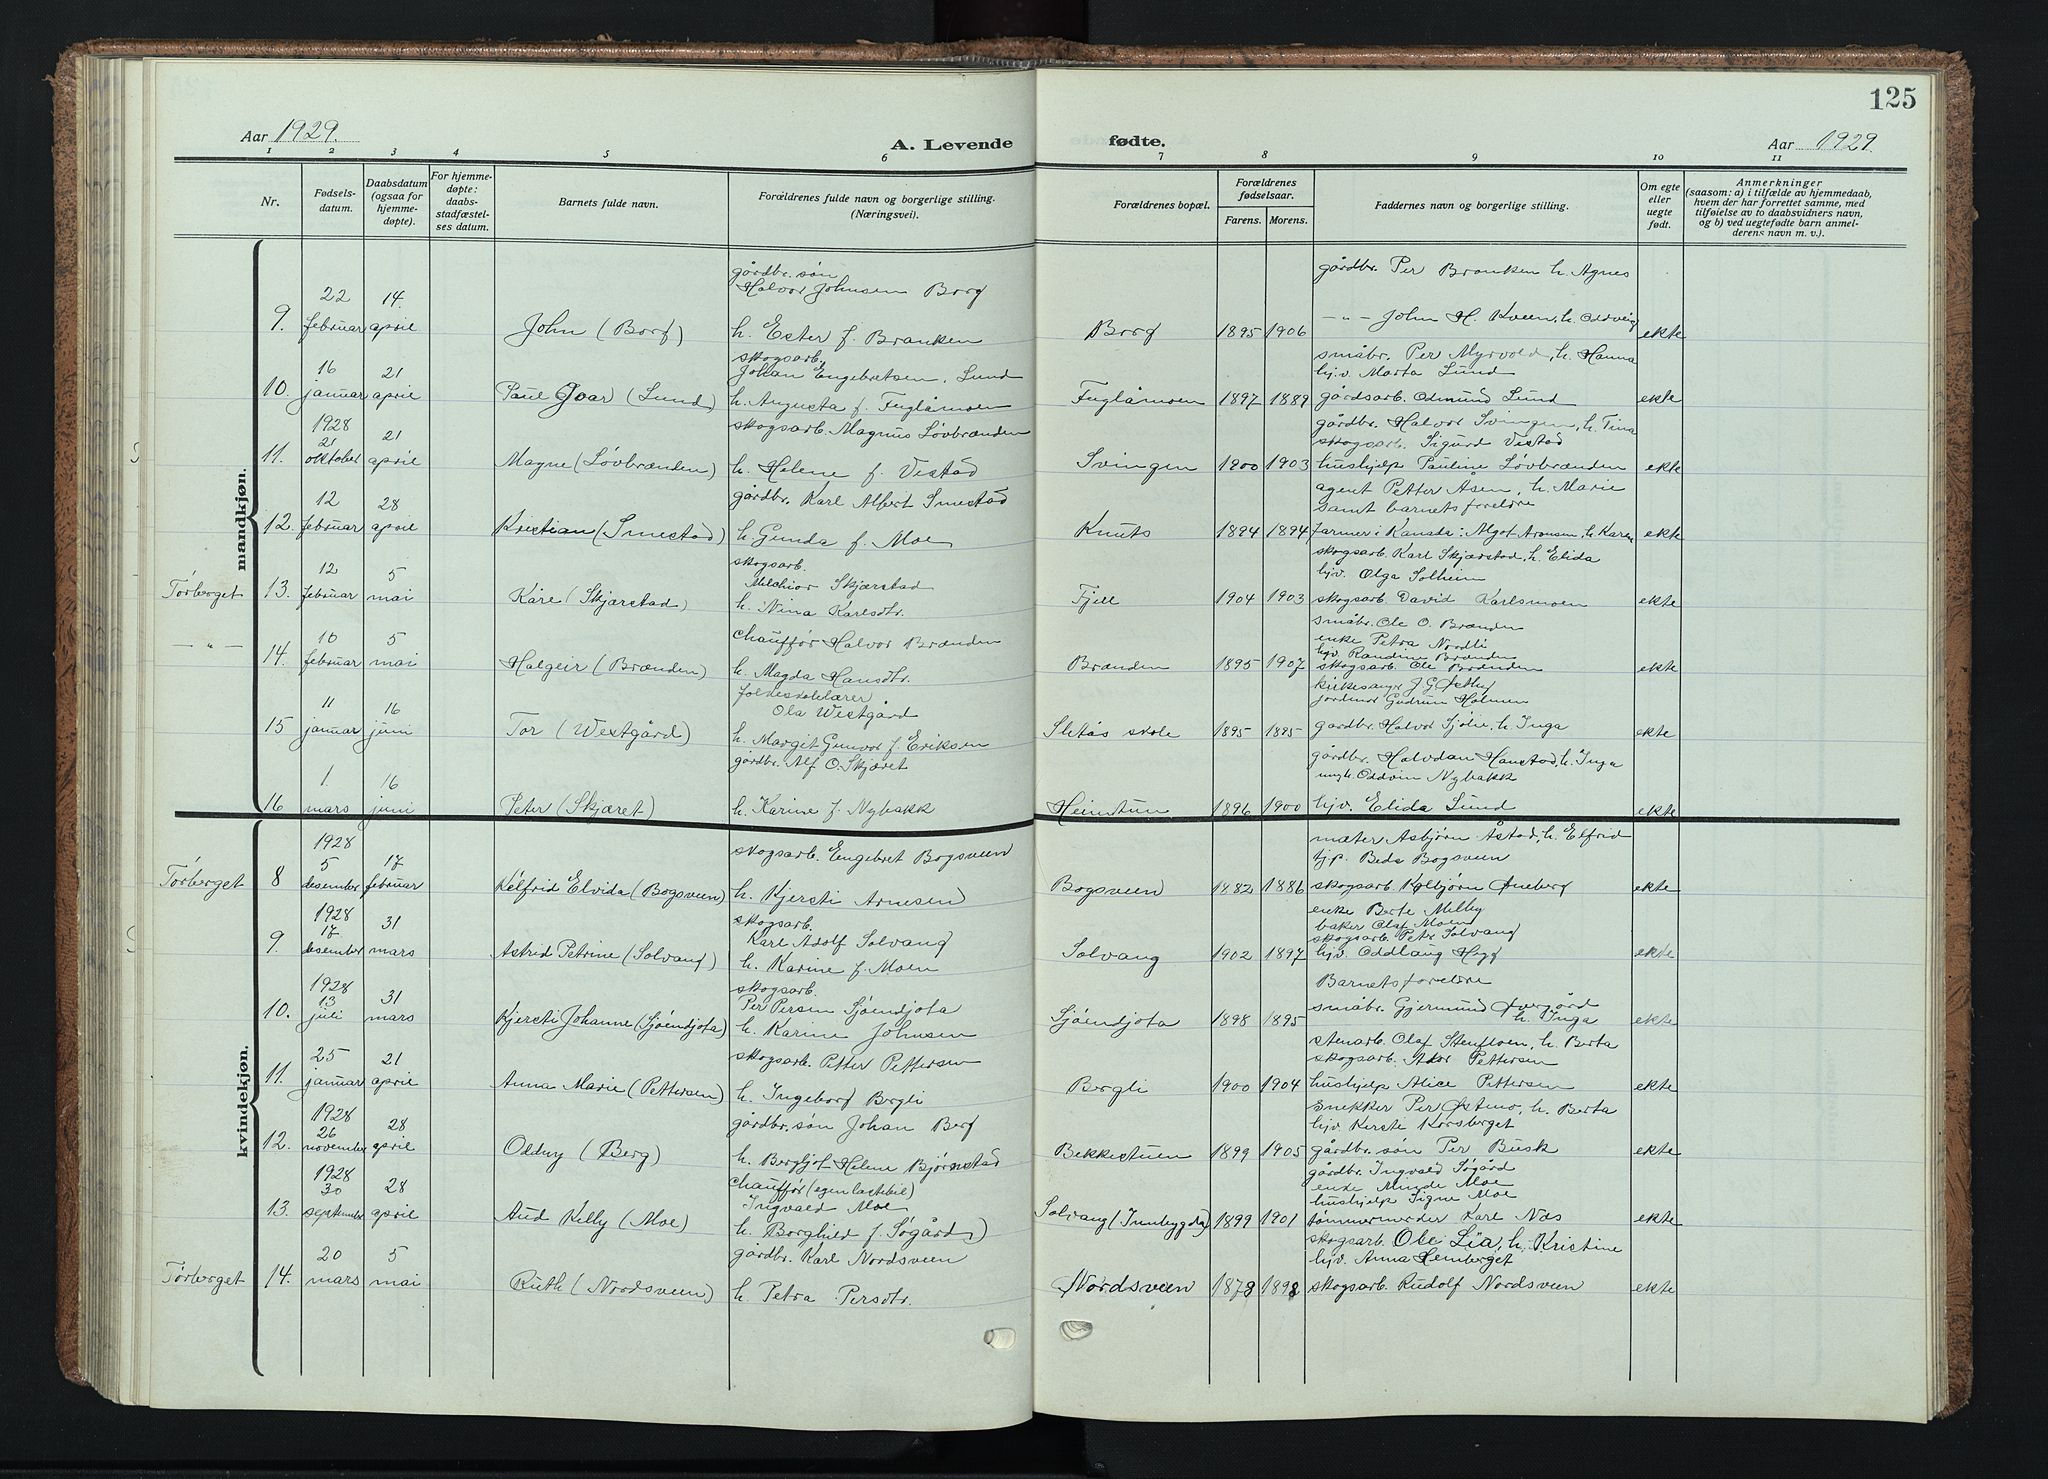 125
Aar 1929.
A. Levende
fødte.
Aar 1929.
1 2 3 4 5 6 7 8 9 10 11
Nr.
Fødsels-
datum.
Daabsdatum
(ogsaa for
hjemme-
døpte).
For hjemme-
døpte:
daabs-
stadfæstel-
ses datum.
Barnets fulde navn.
Forældrenes fulde navn og borgerlige stilling.
(Næringsvei).
Forældrenes bopæl.
Forældrenes
fødselsaar.
Farens. Morens.
Faddernes navn og borgerlige stilling.
Om egte
eller
uegte
født.
Anmerkninger
(saasom: a) i tilfælde av hjemmedaab,
hvem der har forrettet samme, med
tilføielse av to daabsvidners navn,
og b) ved uegtefødte barn anmel-
derens navn m. v.).
mandkjøn.
gårdbr. søn
Halvor Johnsen Borg
gårdbr. Per Branken h. Agnes
22 14.
— " — John H. Kveen, h. Oddveig
9. februar april John (Borg) h. Ester f. Branken Borg 1895 1906 ekte
skogsarb.
småbr. Per Myrvold, h. Hanna
16 21 Johan Engebretsen Lund hjv. Marta Lund
10. januar april Paul Ivar (Lund) h. Augusta f. Fuglåmoen Fuglåmoen 1897 1889 gårdsarb. Odmund Lund ekte
1928 skogsarb. Magnus Løvbrænden gårdbr. Halvor Svingen, h. Tina
21 21 skogsarb. Sigurd Vestad
11. oktober april Magne (Løvbrænden) h. Helene f. Vestad Svingen 1900 1903 hushjelp Pauline Løvbrænden ekte
12 28 gårdbr. Karl Albert Smestad agent Petter Åsen, h. Marie
samt barnets foreldre
12. februar april Kristian (Smestad) h. Gunda f. Moe Knuts 1894 1894 farmer i Kanada: Algot Aronsen, h. Karen ekte
12 5 skogsarb. skogsarb. Karl Skjærstad, h. Elida
Melchior Skjærstad hjv. Olga Solheim
Tørberget 13. februar mai Kåre (Skjærstad) h. Nina Karlsdtr. Fjell 1904 1903 skogsarb. David Karlsmoen ekte
10 5 chauffør Halvor Brænden småbr. Ole O. Brænden
enke Petra Nordli
hjv. Randine Brænden
— " — 14. februar mai Halgeir (Brænden) h. Magda Hansdtr. Brænden 1895 1907 skogsarb. Ole Brænden ekte
11 16 folkeskolelærer kirkesanger J G Østby
Ola Westgård jordmor Gudrun Holmen
15 januar juni Tor (Westgård) h. Margit Gunvor f. Eriksen Sletås skole 1895 1895 gårdbr. Halvor Sjølie, h. Inga ekte
1. 16 gårdbr. Alf O. Skjæret gårdbr. Halvdan Hanstad, h. Inga
ungk. Oddvin Nybakk
16 mars juni Peter (Skjæret) h. Karine f. Nybakk Heimtun 1896 1900 hjv. Elida Lund ekte
kvindekjøn.
1928 skogsarb. Engebret Bogsveen mæter Asbjørn Åstad, h. Elfrid
5 17 tjp. Beda Bogsveen
Tørberget 8 desember februar Kelfrid Elvida (Bogsveen) h. Kjersti Arnesen Bogsveen 1882 1886 skogsarb. Kolbjørn Øneberg ekte
1928 31 skogsarb. enke Berte Milby
17 Karl Adolf Solvang baker Olaf Moen
skogsarb. Peter Solvang
9 desember mars Astrid Petrine (Solvang) h. Karine f. Moen Solvang 1902 1897 hjv. Oddlaug Hegg ekte
1928 skogsarb. Barnets foreldre
13 31 Per Persen Sjøendjota småbr. Gjermund Øvergård
10. juli mars Kjersti Johanne (Sjøendjota) h. Karine Johnsen Sjøendjota 1898 1895 h. Inga ekte
25 21 skogsarb. Petter Pettersen stenarb. Olaf Stenfloen, h. Berta
skogsarb. Ador Pettersen
11. januar april Anna Marie (Pettersen) h. Ingeborg Bergli Bergli 1900 1904 hushjelp Alice Pettersen ekte
1928 gårdbr. søn Johan Berg snekker Per Østmo, h. Berta
26 28 hjv. Kersti Korsberget
12. november april Oddny (Berg) h. Bergljot Helene Bjørnstad Bekkestuen 1899 1905 gårdbr. søn Per Busk ekte
1928 chauffør (egen lastebil) gårdbr. Ingvald Søgård
30 28 Ingvald Moe enke Minda Moe
hushjelp Signe Moe
13. september april Aud Kelly (Moe) h. Borghild f. Søgård) Solvang (Innbygda) 1899 1901 tømmermerker Karl Næs ekte
20 5 gårdbr. Karl Nordsveen skogsarb. Ole Lia, h. Kristine
hjv. Anna Hemberget
Tørberget 14. mars mai Ruth (Nordsveen) h. Petra Persdtr. Nordsveen 1878 1898 skogsarb. Rudolf Nordsveen ekte